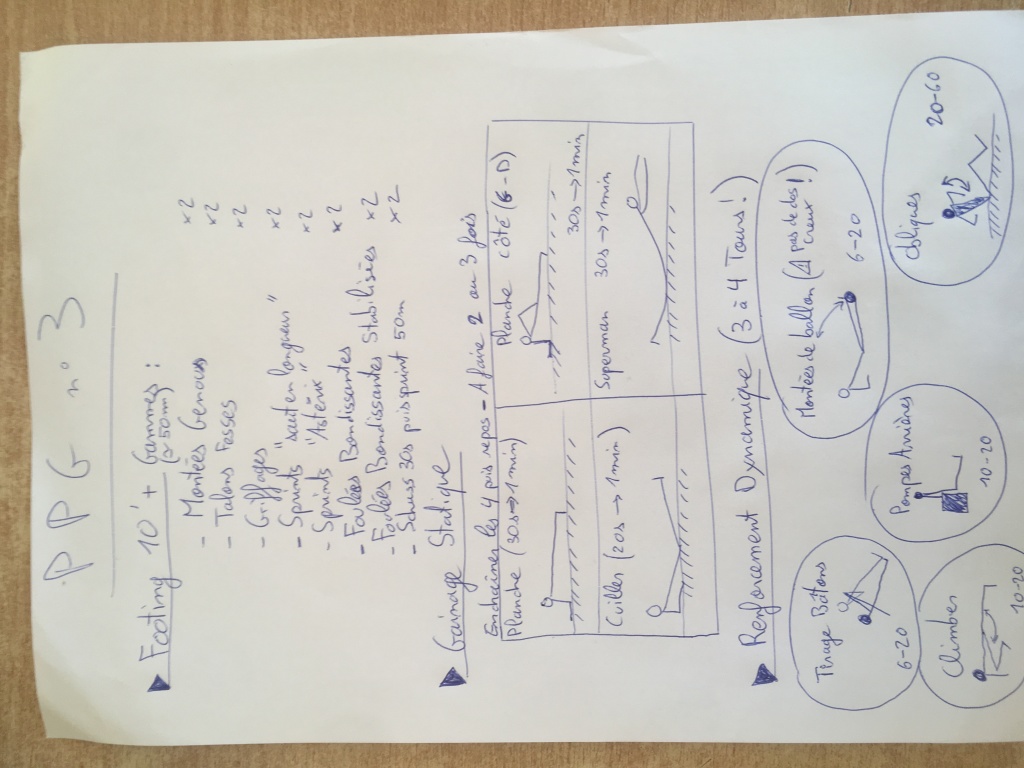 PPG n°3
Footing 10' + Gammes :
(≈50m)
- Montées Genoux x2
- Talons Fesses x2
- Griffages x2
- Sprints "saut en longueur" x2
- Sprints "Astérix" x2
- Foulées Bondissantes x2
- Foulées Bondissantes Stabilisées x2
- Schuss 30s puis sprint 50m x2
Gainage Statique
Enchaîner les 4 puis repos - A faire 2 ou 3 fois
Planche (30s → 1min)
Planche côté (G-D)
30s → 1min
Cuiller (20s → 1min)
Superman 30s → 1min
Renforcement Dynamique (3 à 4 Tours !)
Tirage Bâtons
6-20
Montées de ballon (Δ pas de dos creux !)
6-20
Climber
10-20
Pompes Arrières
10-20
Obliques
20-60